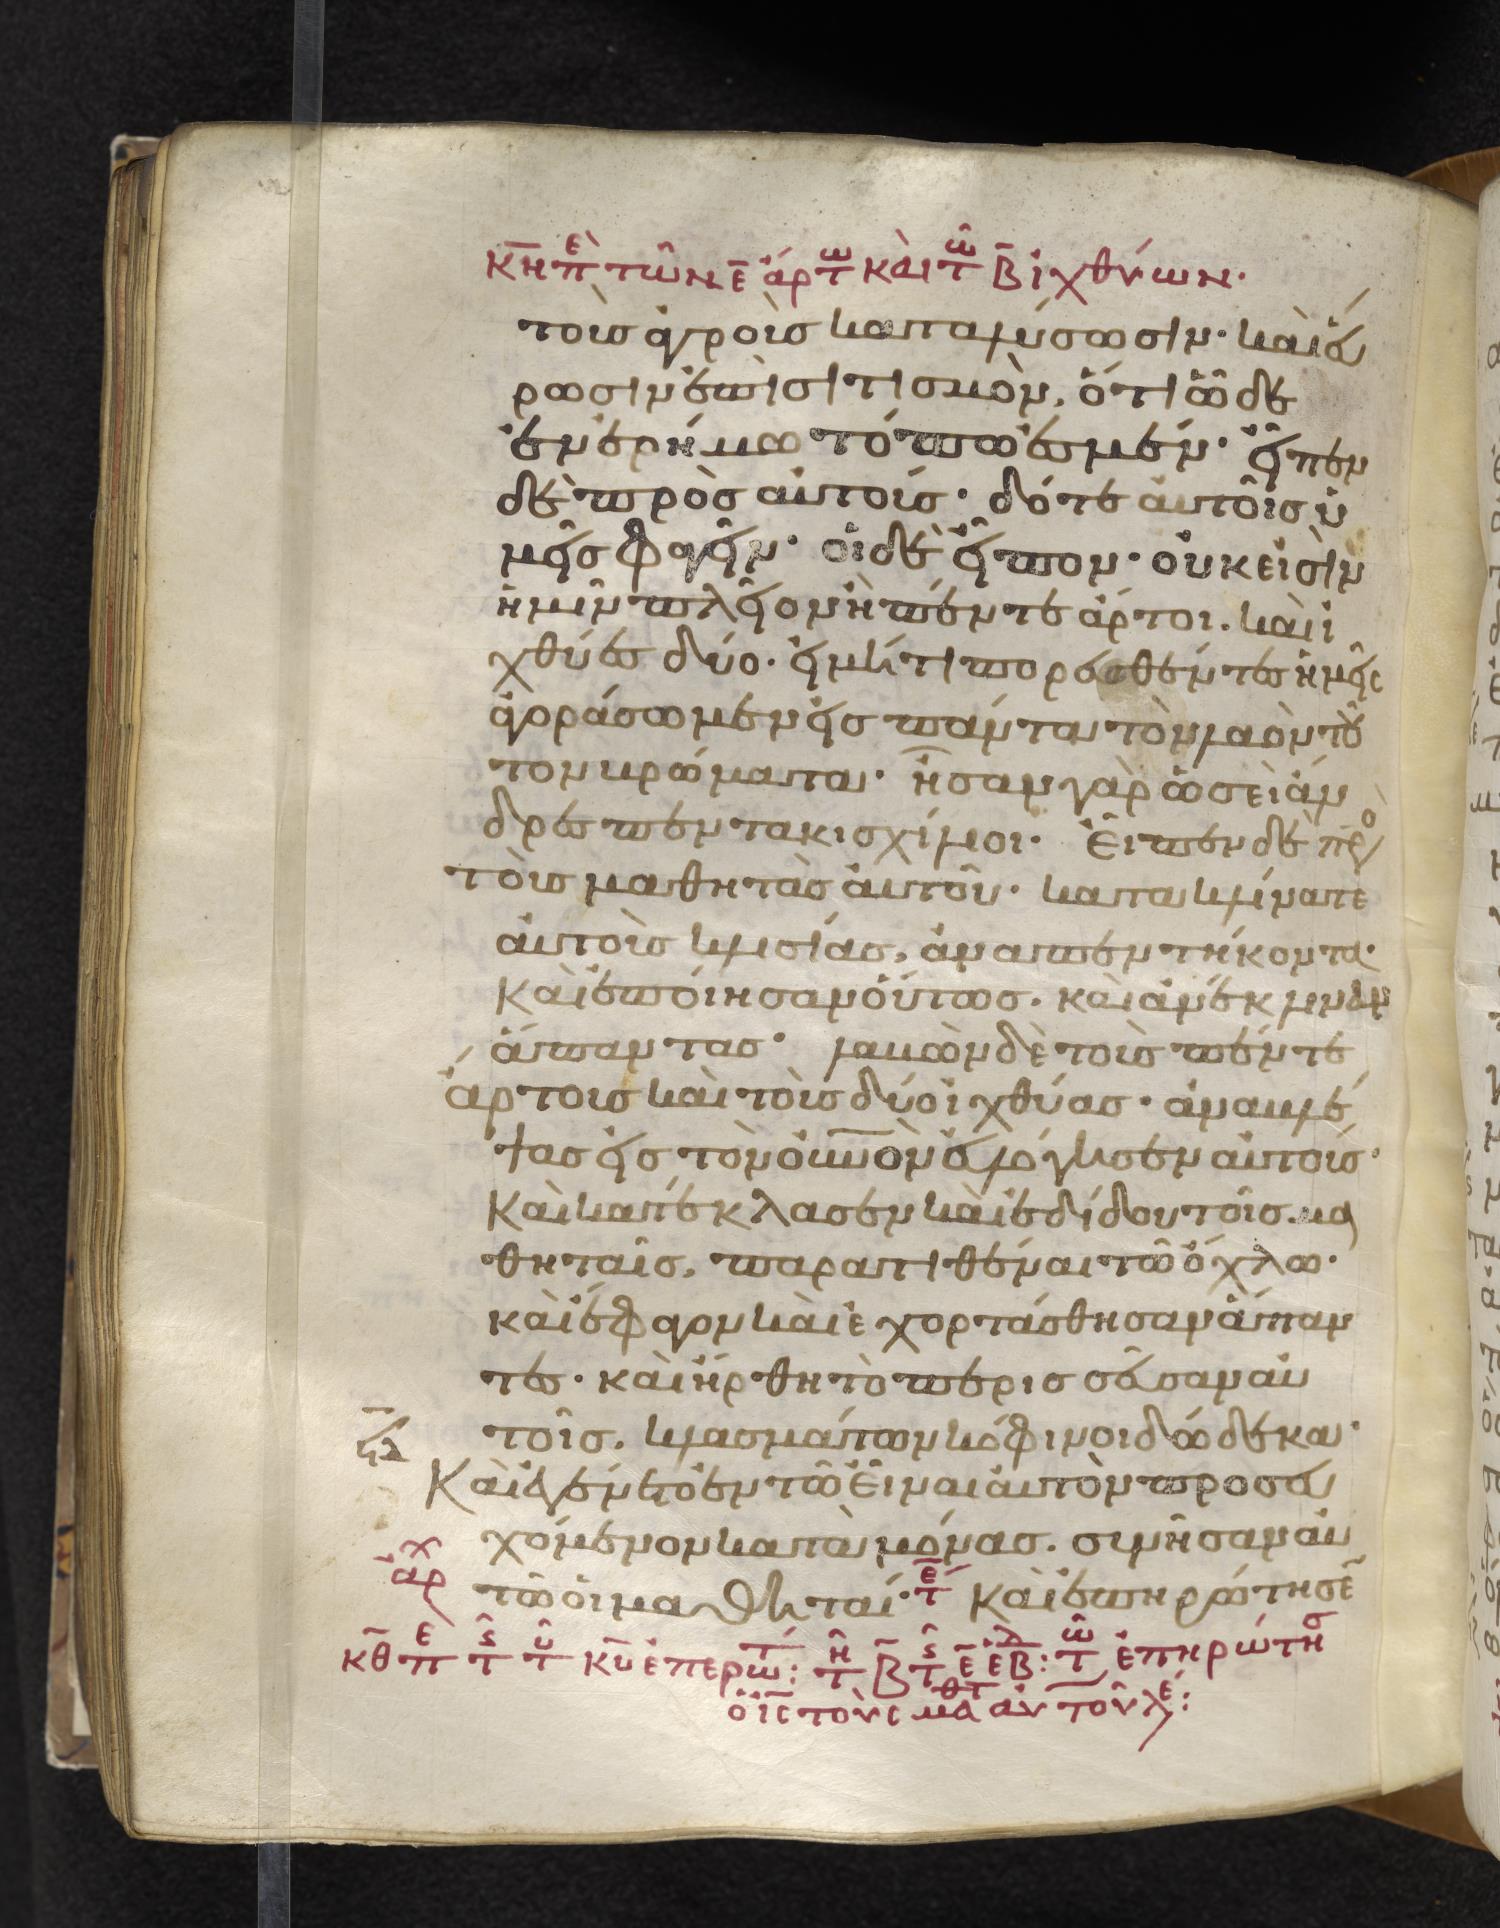 κη πε τῶν ε ἄρτω καὶ τῶ β ἰχθύων·
τοὺσ ἀγροὺσ καταλύσωσιν· καὶ εὕ
ρωσιν ἐπισιτισμὸν, ὅτι ὧδε
ἐν ἐρήμω τόπω ἐσμέν· εἶπεν
δὲ πρὸσ αὐτούσ· δότε αὐτοῖσ ὑ
μεῖσ φαγεῖν· οἱ δὲ εἶπον· οὐκ εἰσὶν
ἡμῖν πλεῖον ἢ πέντε ἄρτοι. καὶ ἰ
χθύεσ δύο· εἰ μήτι πορευθέντεσ ἡμεῖσ
ἀγοράσωμεν εἰσ πάντα τὸν λαὸν τοῦ
τον βρώματα· ἦσαν γὰρ ὡσεὶ ἄν
δρεσ πεντακισχίλιοι· Εἶπεν δὲ πρὸ
τοὺσ μαθητὰσ αὐτοῦ· κατακλίνατε
αὐτοὺσ κλισίασ, ἀνὰ πεντήκοντα·
Καὶ ἐποίησαν οὕτωσ. καὶ ἀνέκλιναν
ἅπαντασ· λαβὼν δὲ τοὺσ πέντε
ἄρτουσ καὶ τοὺσ δύο ἰχθύασ· ἀναβλέ
ψασ εἰσ τὸν οὐνὸν εὐλόγησεν αὐτούσ·
Καὶ κατέκλασεν καὶ ἐδίδου τοῖσ μα
θηταῖσ, παρατιθέναι τῶ ὄχλω·
καὶ ἔφαγον καὶ ἐχορτάσθησαν ἅπαν
τεσ· καὶ ἤρθη τὸ περισσεῦσαν αὐ
τοῖσ, κλασμάτων κόφινοι δώδεκα·
Καὶ ἐγένετο ἐν τῶ εἶναι αὐτὸν προσευ
χόμενον καταμόνασ. συνῆσαν αὐ
αρχ τῶ οἱ μαθηταί· τε Καὶ ἐπηρώτησε
κθ πε τς τυ κυ ἐπερώτ: τη β τς ε εβλ: τῶ ἐπηρώτησ
ὁ ις τοὺς μαθτ αὐτοῦ λε: